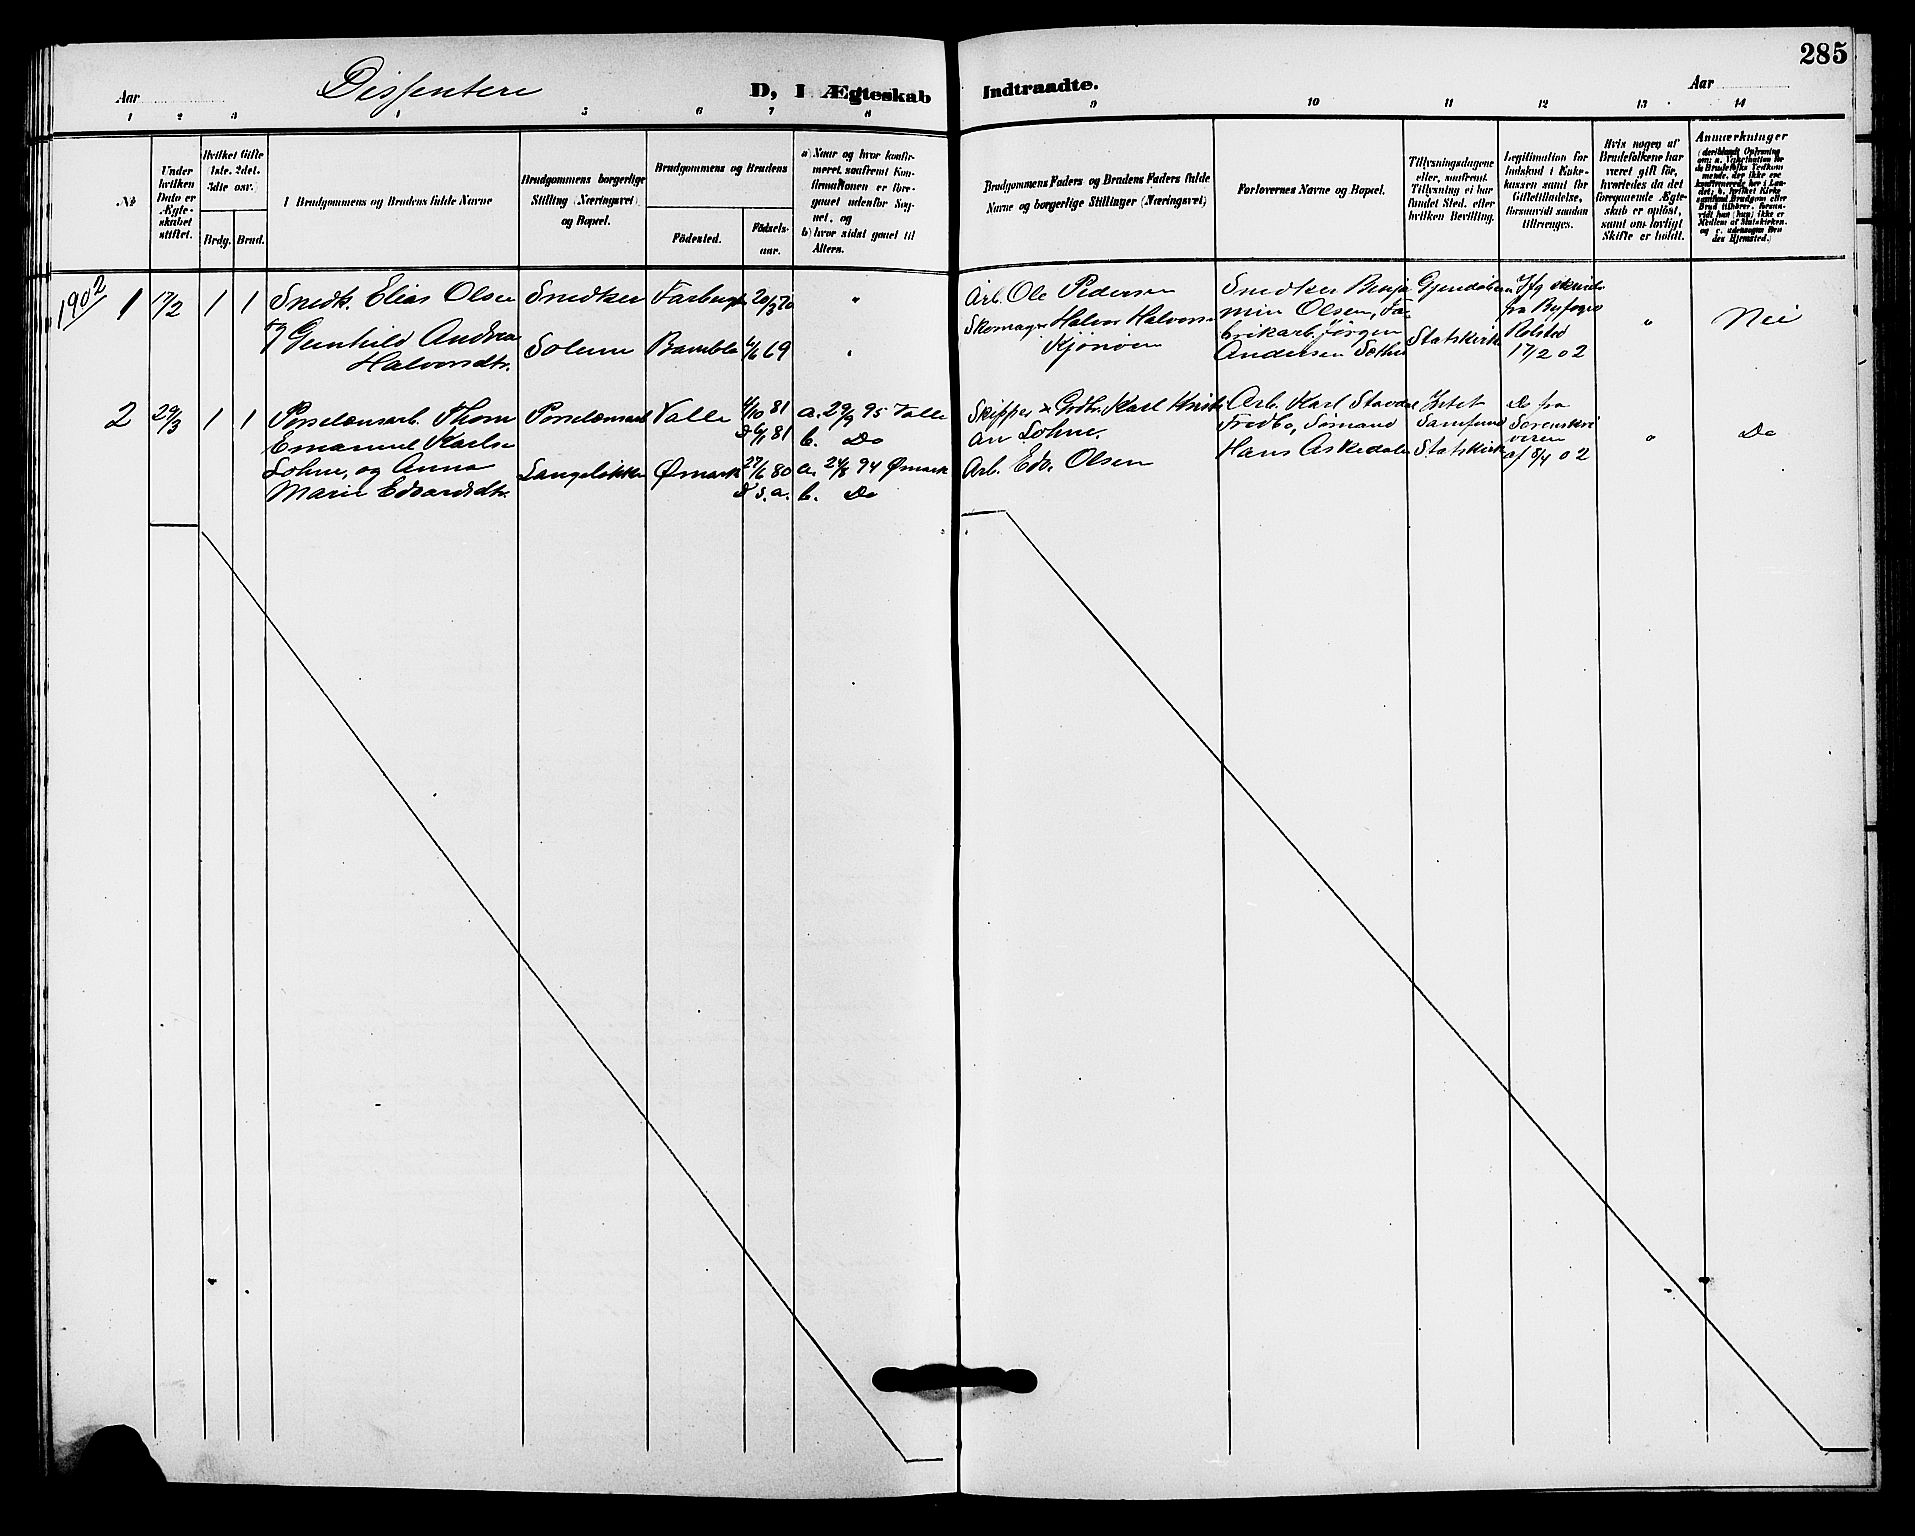 285
Aar
Dissentere
D, I Ægteskab
Indtraadte.
Aar
1 2 3 4 5 6 7 8
9 10 11 12 13 14
№
Under hvilken Dato er Ægteskabet stiftet.
Hvilket Gifte (1ste, 2det, 3die osv.)
Brdg. Brud.
Brudgommens og Brudens fulde Navne
Brudgommens borgerlige Stilling (Næringsvei) og Bopæl.
Brudgommens og Brudens
Födested.
Födselsaar.
a) Naar og hvor konfirmeret, saafremt Konfirmationen er foregaaet udenfor Sognet, og
b) hvor sidst gaaet til Alters.
Brudgommens Faders og Brudens Faders fulde Navne og borgerlige Stillinger (Næringsvei)
Forlovernes Navne og Bopæl.
Tillysningsdagene eller, saafremt Tillysning ei har fundet Sted, efter hvilken Bevilling.
Legitimation for Indskud i Enkekassen samt for Giftetilladelse, forsaavidt saadan tiltrænges.
Hvis nogen af Brudefolkene har været gift før, hvorledes da det foregaaende Ægteskab er opløst, samt om lovligt Skifte er holdt.
Anmærkninger
1902
1 17/2 1 1 Snedk. Elias Olsen Snedker 20/3 70 "
og Gunhild Andrea Solum Bamble 69 "
Halvorsdtr.
Arb. Ole Pedersen
Skomager Halvor Halvorsen
Snedker Benja
min Olsen, Fa-
brikarb. Jørgen
Andersen Sæther
Statskirk
fra Byfoged
Rolsted
17/2 02
" Nei
2 29/3 1 1 Porselænsarb. Thom Porselænsarb Valle 4/10 81 a. 29/9 95 Valle
Emanuel Karlse 81 b. Do
Lohne, og Anna Langeløkken Ømark 27/6 80 a. 24/8 94 Ømark
Marie Edvardsdtr. s. a. b. Do
Skipper & Grdbr. Karl Kristi
an Lohne.
Arb. Edv. Olsen
Arb. Karl Stavda
Fredbo, Sømand
Hans Askedalen
Intet
Samfund
Statskirk
Do fra
Sorenskri
veren
af 8/4 02
" Do